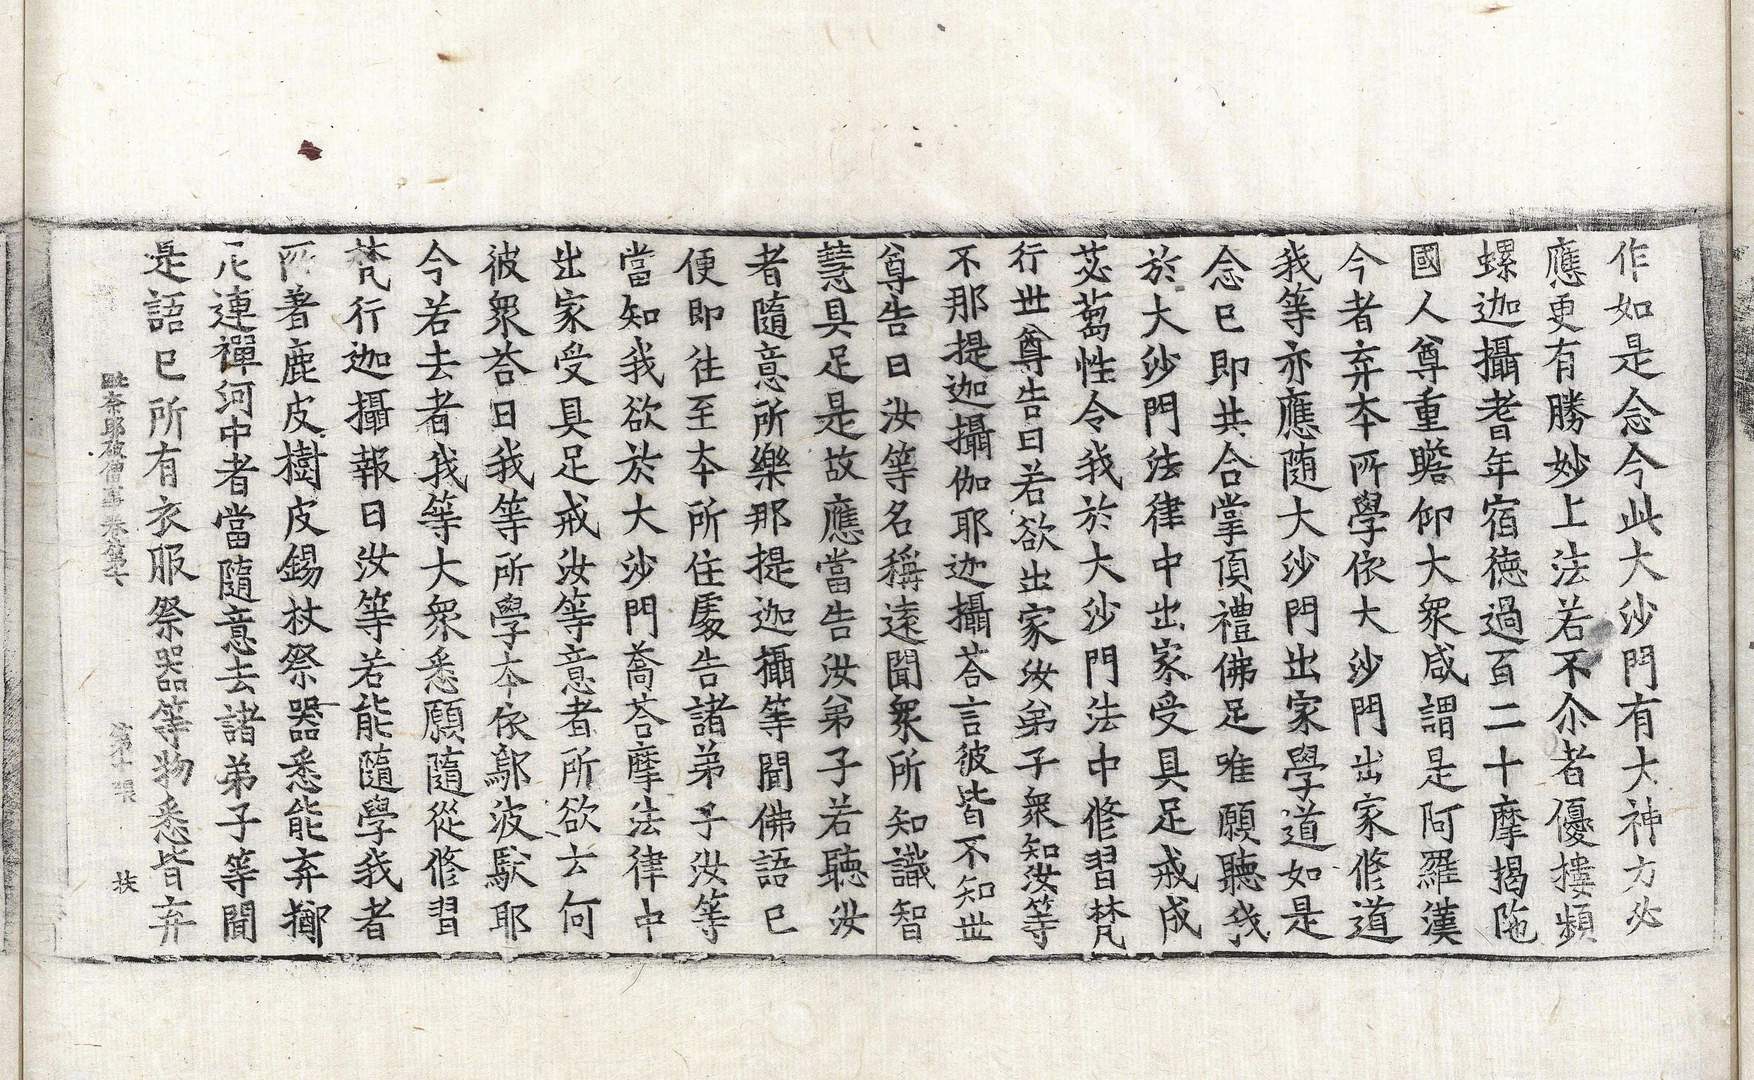 作如是念今此大沙門有大神方必
應更有勝妙上法若不尒者優摟頻
螺迦攝耆年宿徳過百二十摩揭陁
國人尊重瞻仰大衆咸謂是阿羅漢
今者弃本所學依大沙門出家修道
我等亦應随大沙門出家學道如是
念已即共合掌頂禮佛足唯願聽我
於大沙門法律中出家受具足戒成
苾蒭性令我於大沙門法中修習梵
行世尊告曰若欲出家汝弟子衆知汝等
不那提迦攝伽耶迦攝荅言彼皆不知世
尊告曰汝等名稱遠聞衆所知識智
慧具足是故應當告汝弟子若聽汝
者隨意所樂那提迦攝等聞佛語已
便即往至本所住處告諸弟子汝等
當知我欲於大沙門喬荅摩法律中
出家受具足戒汝等意者所欲云何
彼衆荅曰我等所學本依鄔波馱耶
今若去者我等大衆悉願隨從修習
梵行迦攝報曰汝等若能隨學我者
所著鹿皮樹皮錫杖祭器悉能弃擲
尼連禪河中者當隨意去諸弟子等聞
是語已所有衣服祭器等物悉皆弃
毗奈耶破僧事卷第六 第十張 扶